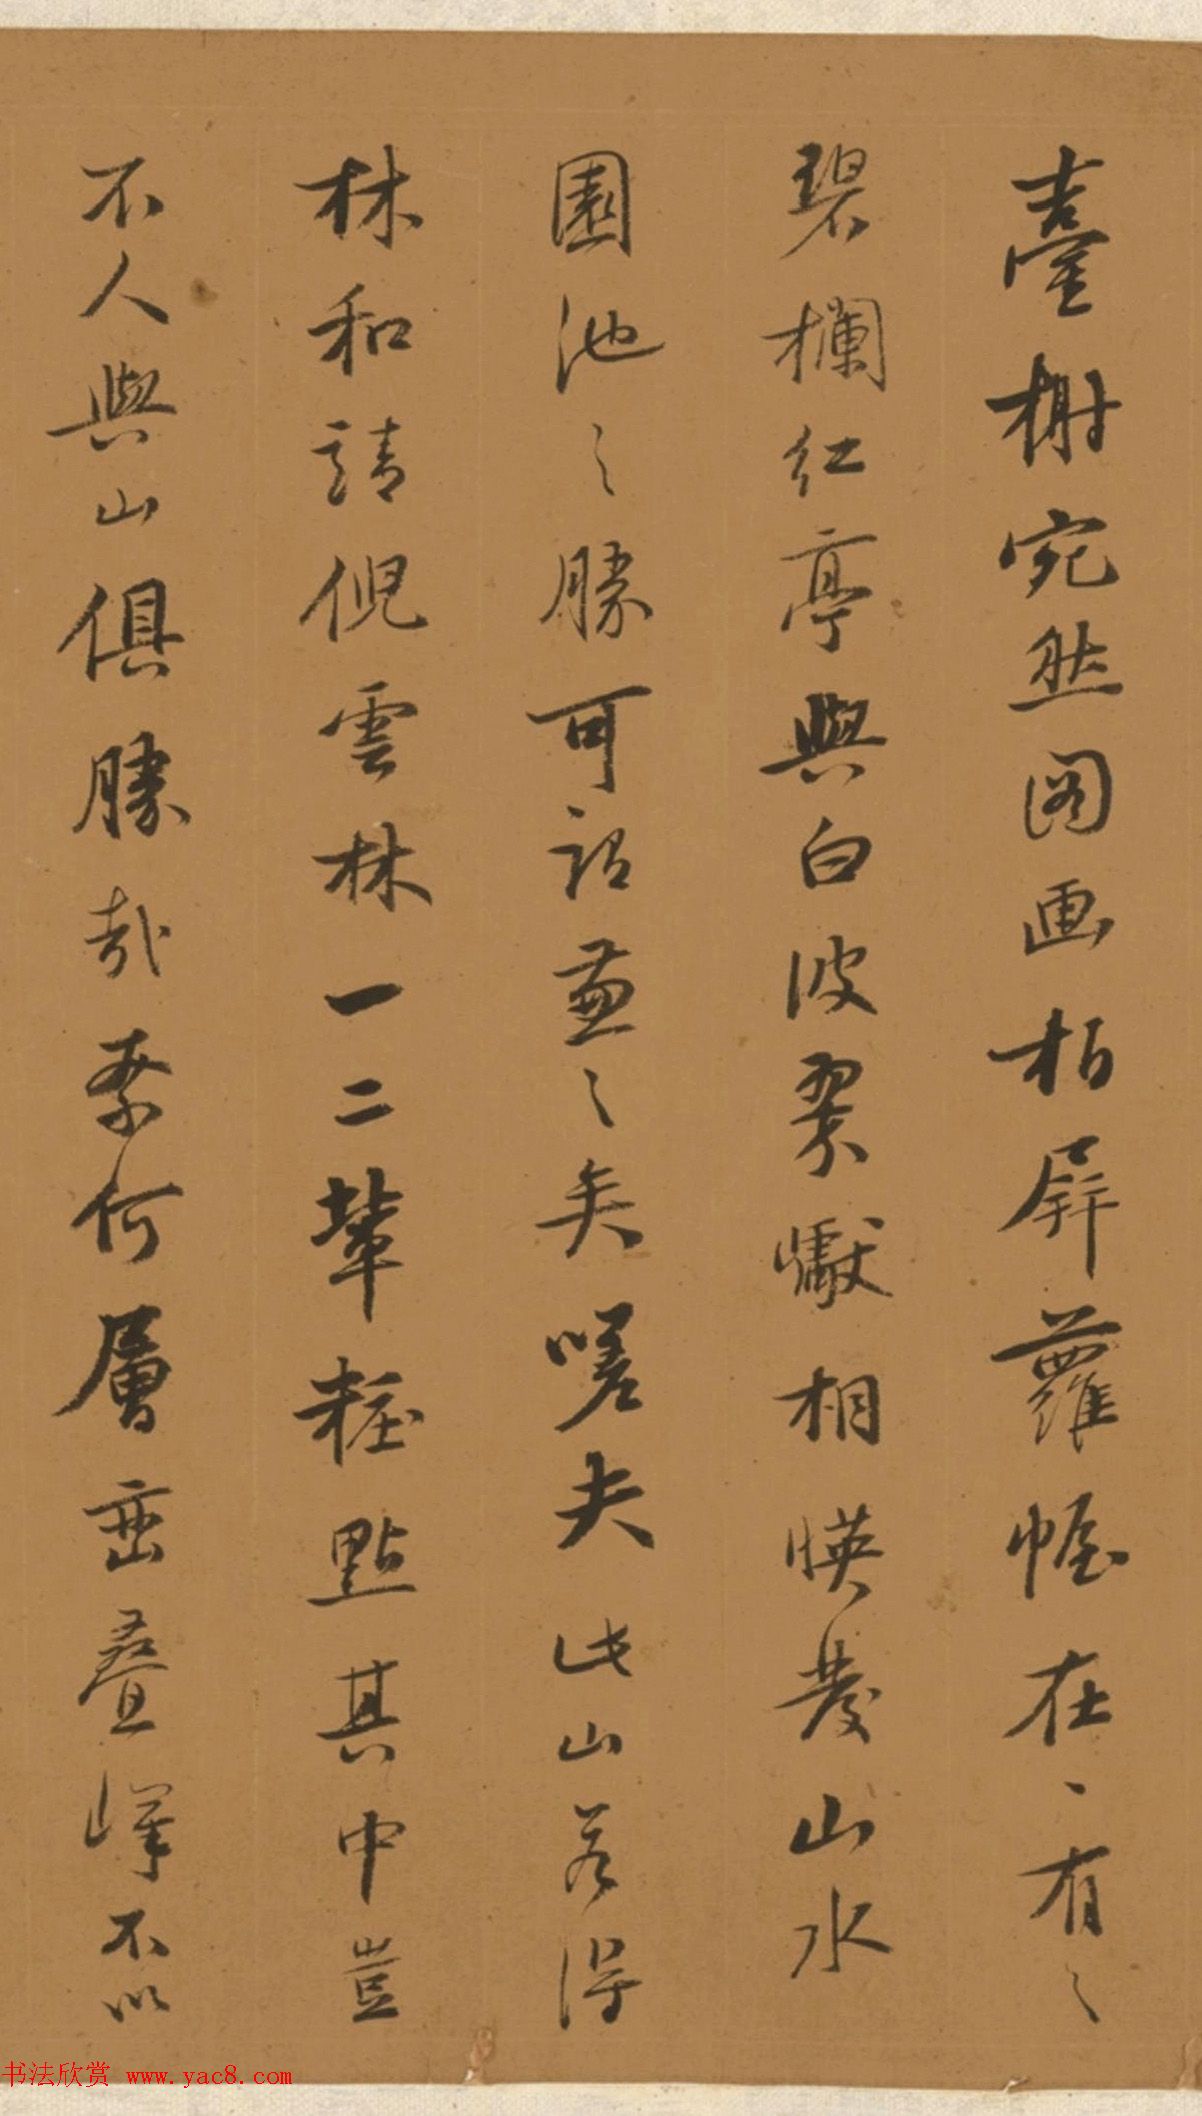 臺榭宛然图画柏屏蘿幄在、有之
碧欄红亭與白波翠巘相暎發山水
園池之勝可謂兼之矣嗟夫此山若得
林和靖倪雲林一二輩粧點其中豈
不人與山俱勝哉奈何層巒疊嶂不以
书法欣赏 www.yac8.com